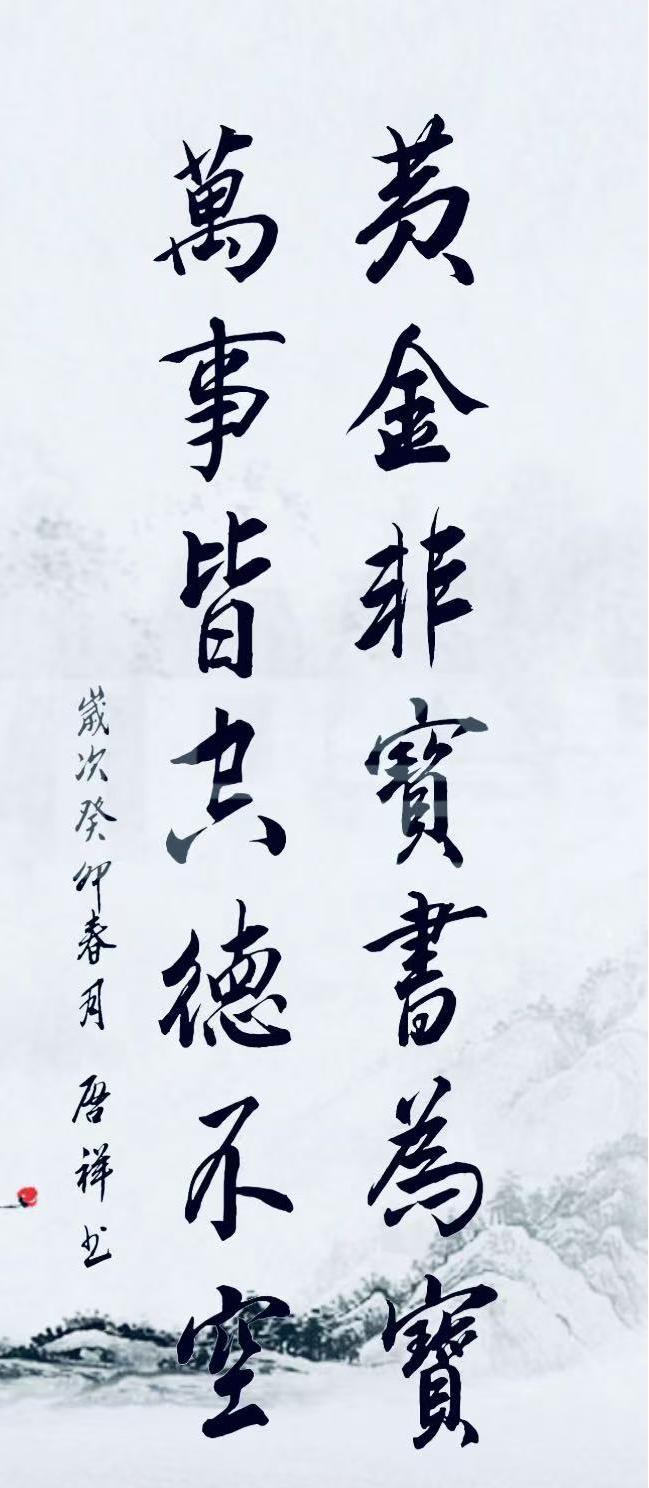 黄金非寶書為寶
萬事皆空德不空
歲次癸卯春月 祥书